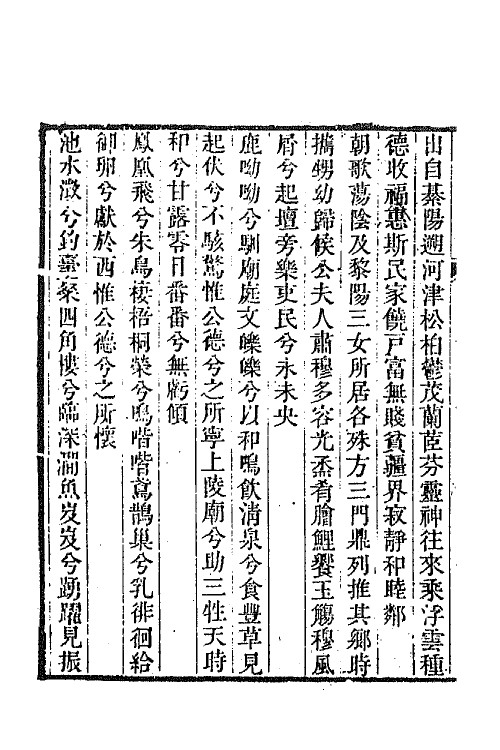 出自綦陽遡河津松柏鬱茂蘭茝芬靈神往來乘浮雲種
德收福惠斯民家饒戸富無賤貧疆界寂靜和睦鄰
朝歌蕩陰及黎陽三女所居各殊方三門鼎列推其鄉時
攜甥幼歸候公夫人肅穆多容光烝肴膾鯉饗玉觴穆風
屑兮起壇旁樂吏民兮永未央
鹿呦呦兮馴廟庭文皪皪兮以和鳴飲淸泉兮食豐草見
起伏兮不駭驚惟公德兮之所寧上陵廟兮助三牲天時
和兮甘露零日番番兮無虧傾
鳳凰飛兮朱鳥棲梧桐榮兮鳴喈喈鳶鵲巢兮乳徘徊給
御卵兮獻於西惟公德兮之所懷
池水澂兮釣臺粲四角樓兮臨深澗魚岌岌兮踴躍見振